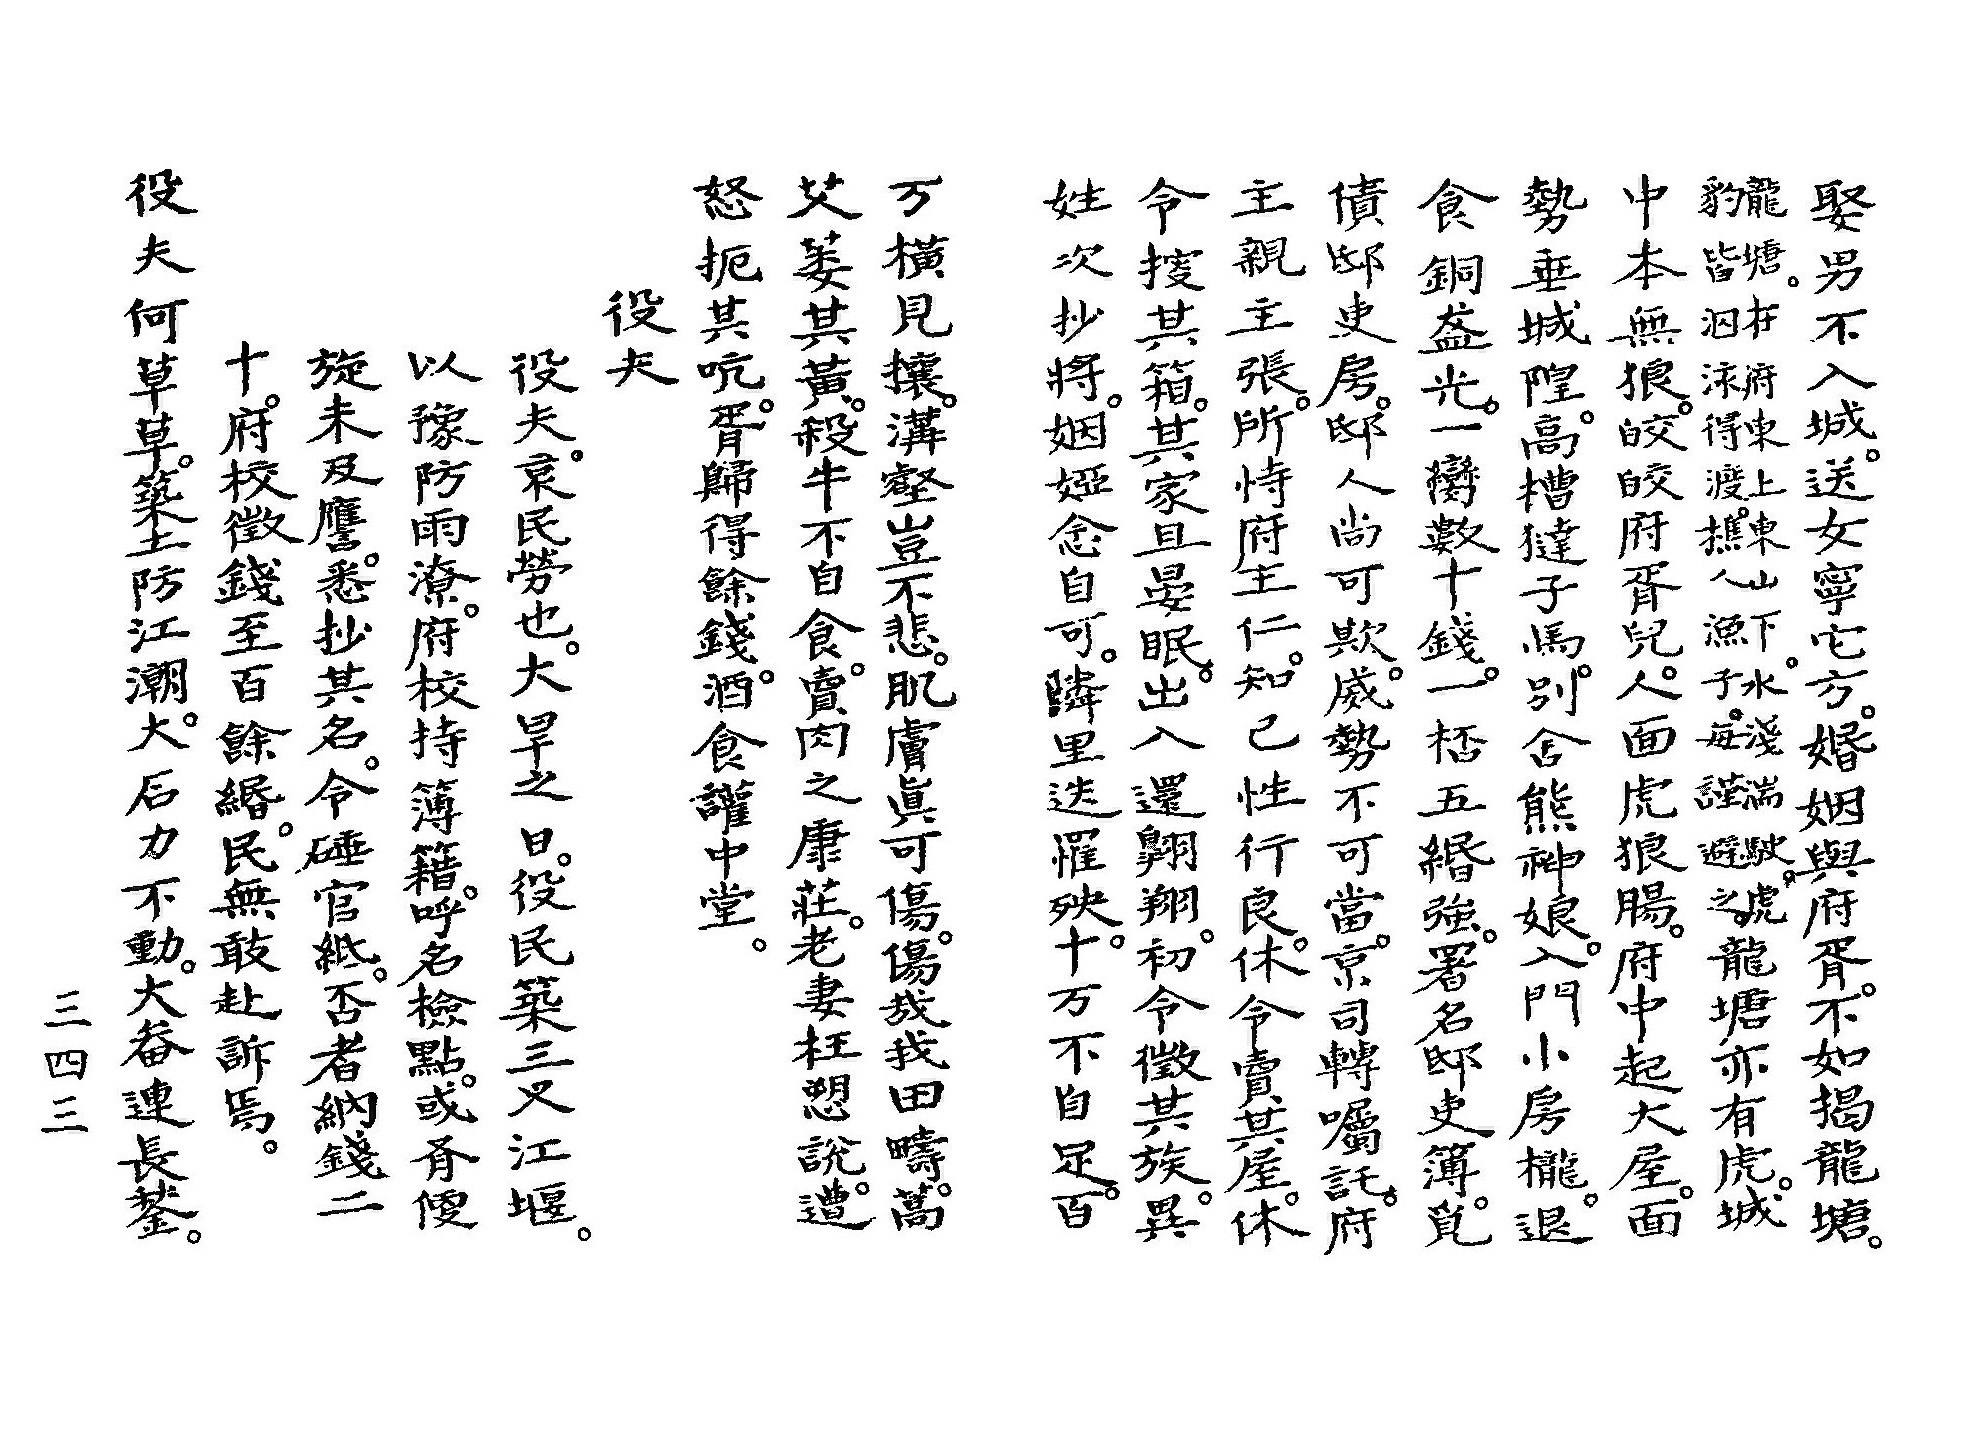 娶男不入城。送女寧它方。婚姻與府胥。不如揭龍塘。
龍塘。在府東上東山下。水淺湍駛。虎
豹皆泅泳得渡。樵人漁子。每謹避之。龍塘亦有虎。城
中本無狼。皎皎府胥兒。人面虎狼腸。府中起大屋。面
勢垂城隍。高槽撻子馬。別舍熊神娘。入門小房櫳。退
食銅盌光。一臠數十錢。一桮五緡強。署名邸吏簿。覓
債邸吏房。邸人尚可欺。威勢不可當。京司轉囑託。府
主親主張。所恃府主仁。知己性行良。休令賣其屋。休
令搜其箱。其家旦晏眠。出入還翱翔。初令徵其族。異
姓次抄將。姻婭念自可。隣里迭罹殃。十万不自足。百
万橫見攘。溝壑豈不悲。肌膚眞可傷。傷哉我田疇。蒿
艾萎其黃。殺牛不自食。賣肉之康莊。老妻枉愬說。遭
怒扼其吭。胥歸得餘錢。酒食讙中堂。
役夫
役夫。哀民勞也。大旱之日。役民築三叉江堰。
以豫防雨潦。府校持簿籍。呼名檢點。或肴傻
旋未及譍。悉抄其名。令硾官紙。否者納錢二
十。府校徵錢至百餘緡。民無敢赴訴焉。
役夫何草草。築土防江潮。大石力不動。大畚連長蔾。
三四三